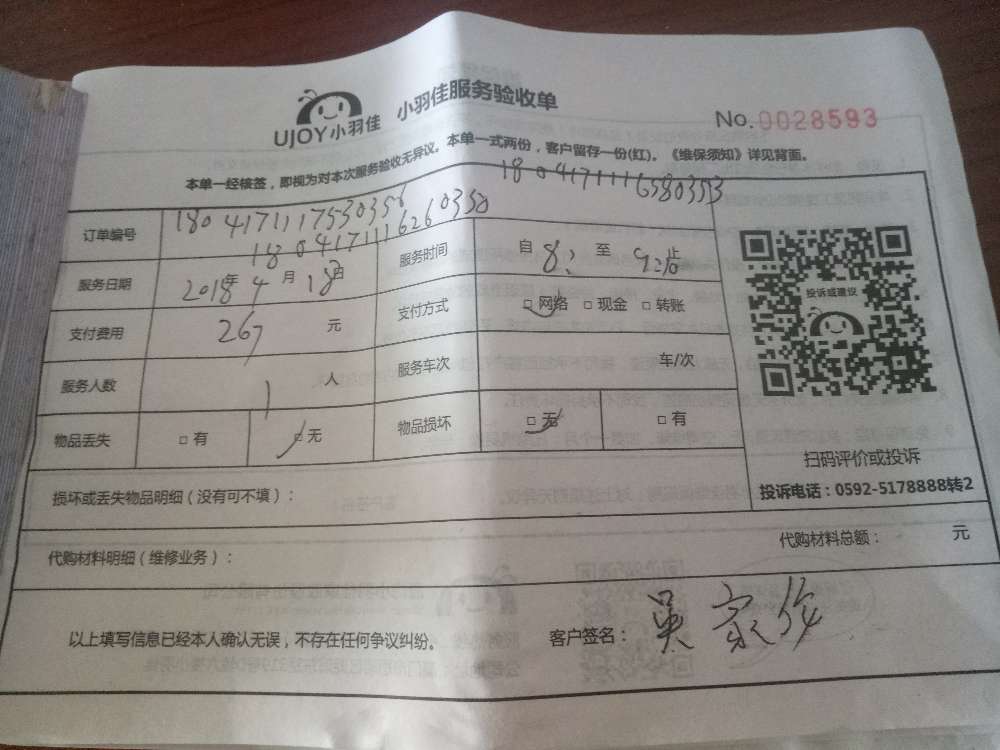 UJOY小羽佳 小羽佳服务验收单
No.0028593
本单一经核签，即视为对本次服务验收无异议。本单一式两份，客户留存一份(红)。《维保须知》详见背面。
1804171116580353
订单编号 1804171117530356
1804171116260350
服务日期 2018年4月18日 服务时间 自 8: 至 9:20止
支付费用 267 元 支付方式 □网络 □现金 □转账
服务人数 1 人 服务车次 车/次
物品丢失 □有 □无 物品损坏 □无 □有
投诉或建议
扫码评价或投诉
投诉电话：0592-5178888转2
损坏或丢失物品明细（没有可不填）：
代购材料明细（维修业务）： 代购材料总额： 元
以上填写信息已经本人确认无误，不存在任何争议纠纷。 客户签名： 吴家